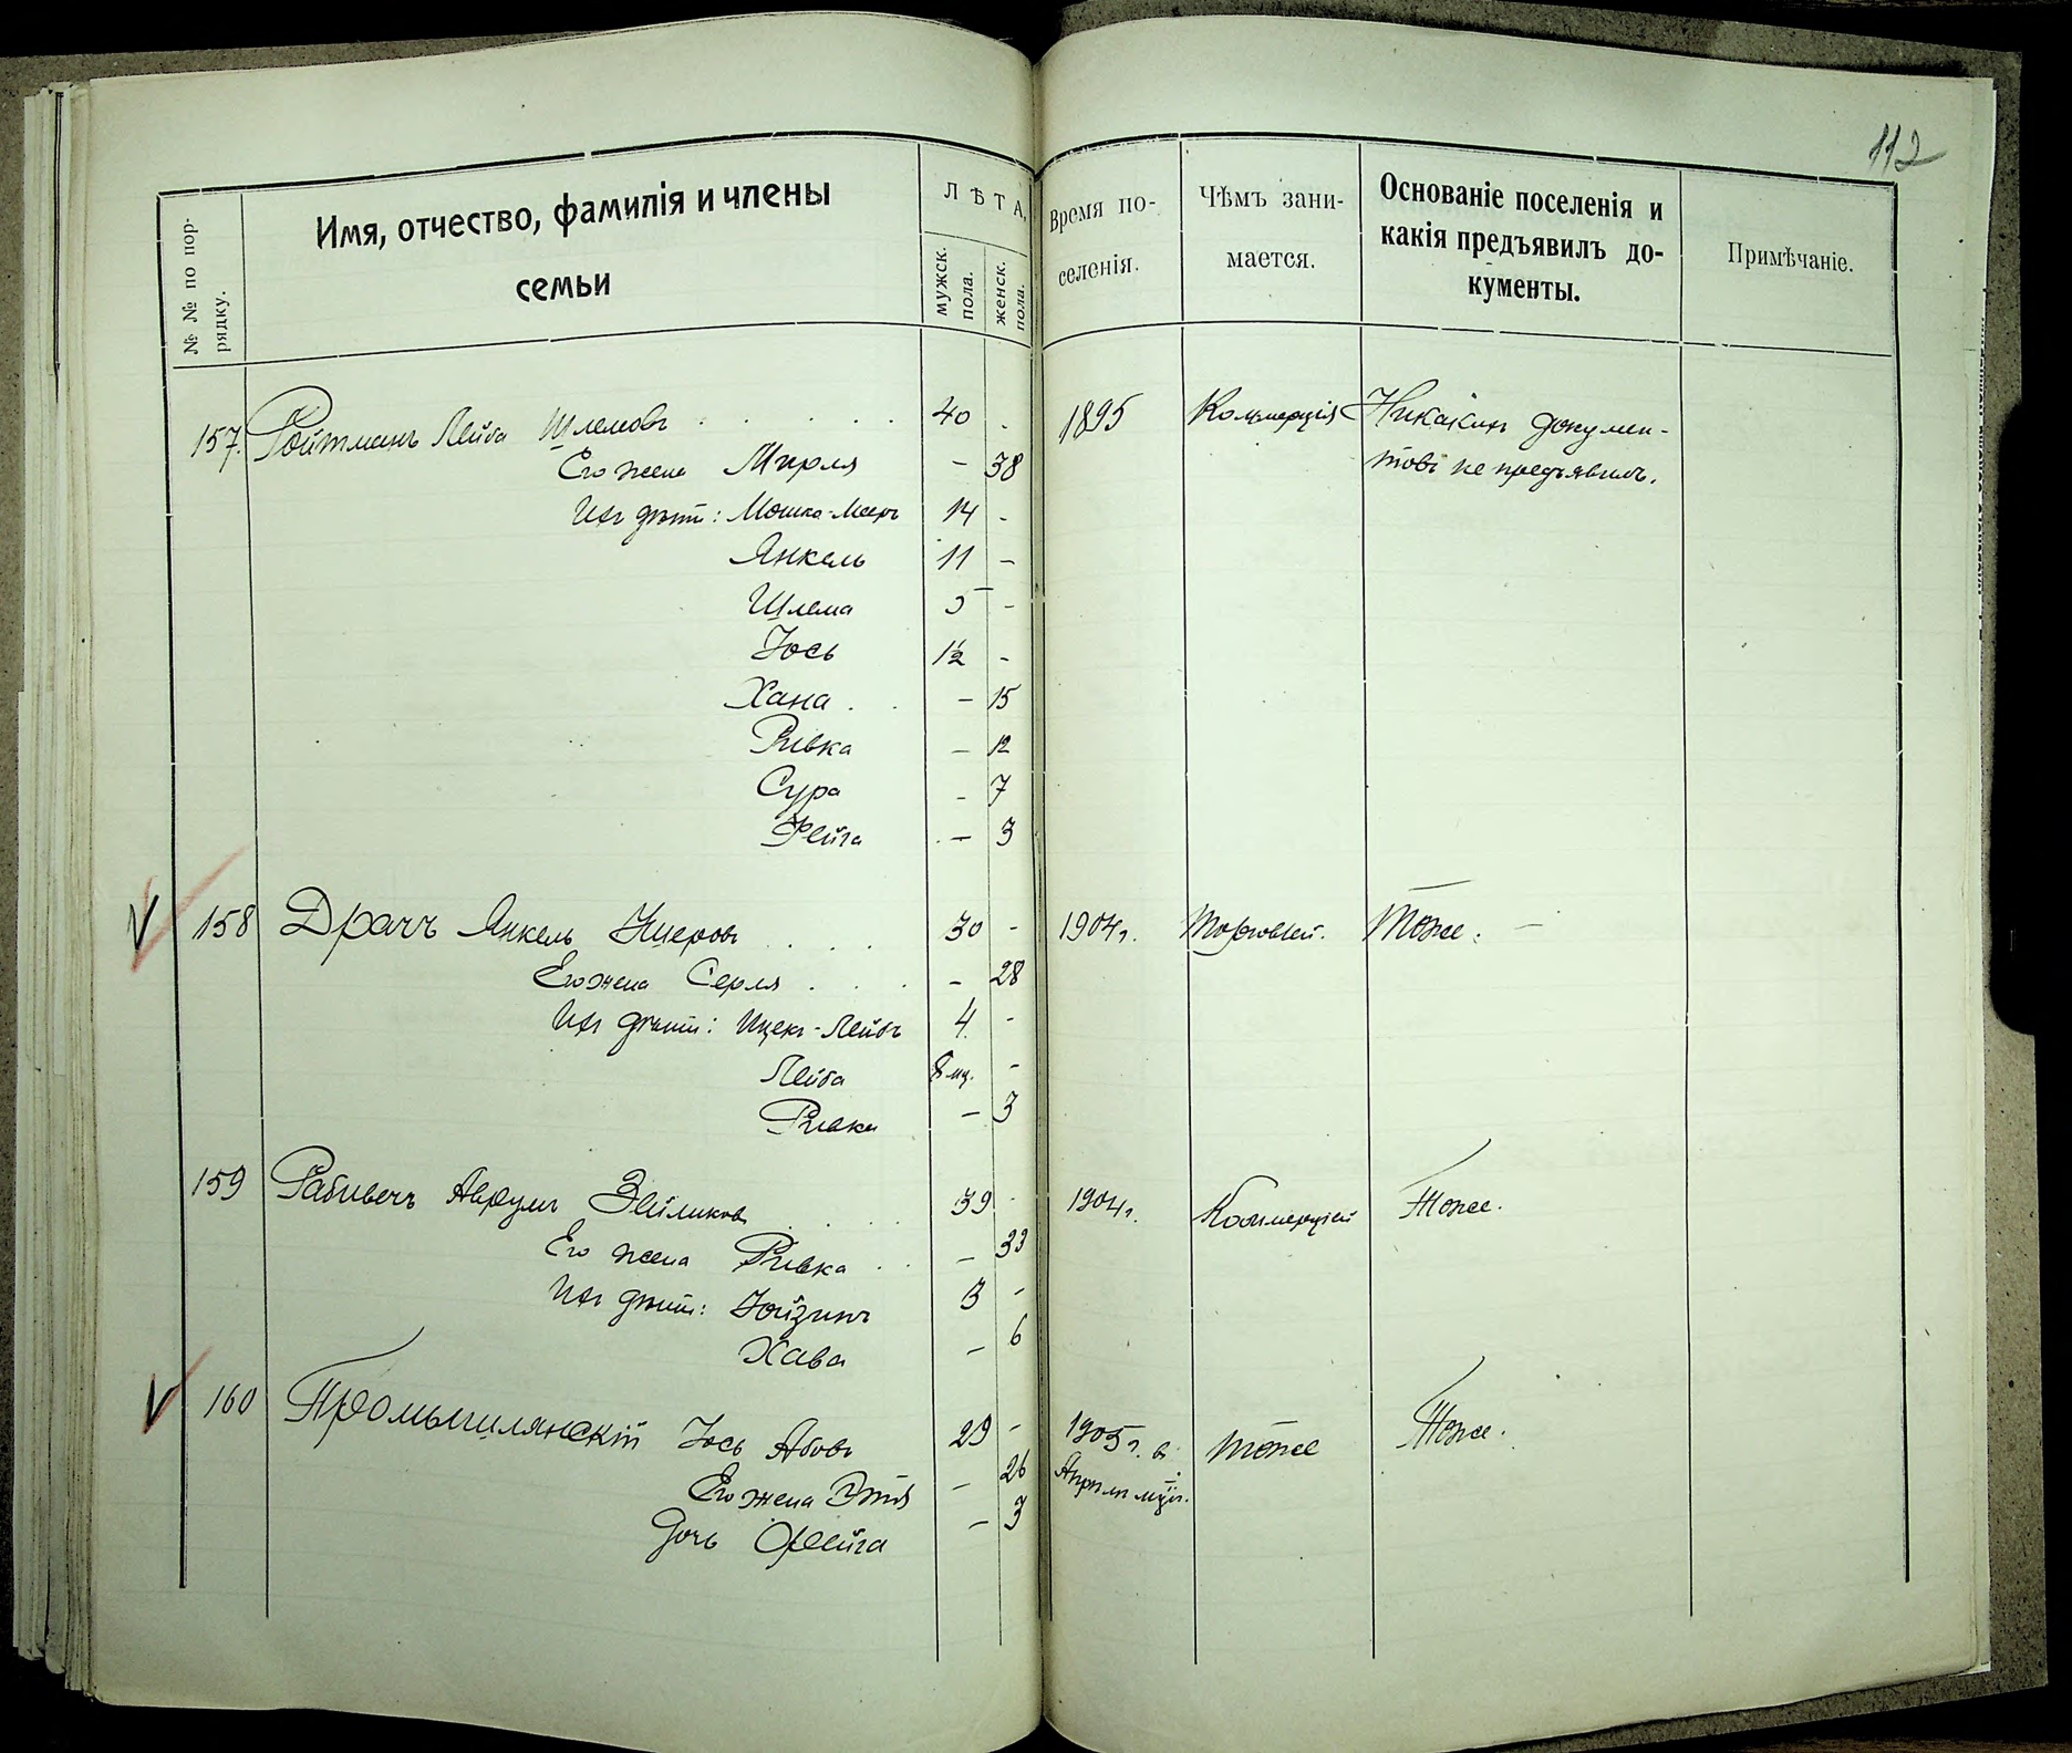 112
№ № по пор-
рядку.
Имя, отчество, фамилія и члены
семьи
ЛѢТА,
мужск.
пола.
женск.
пола.
Время по-
селенія.
Чѣмъ зани-
мается.
Основаніе поселенія и
какія предъявилъ до-
кументы.
Примѣчаніе.
157. Ройтманъ Лейба Шлемовъ 40 - 1895 Коммерція Никакихъ докумен-
Его жена Мирля - 38 товъ не предъявилъ.
Ихъ дѣти: Мошко-Мееръ 14 -
Янкель 11 -
Шлема 5 -
Іось 1½ -
Хана - 15
Ривка - 12
Сура - 7
Фейга - 3
158 Драчъ Янкель 30 - 1904 г. Торговлей. Тоже. -
Его жена Серля - 28
Ихъ дѣти: Ицекъ-Лейбъ 4 -
Лейба 8 мц. -
Ривка - 3
159 Рабивечъ Аврумъ Зейликовъ 39 - 1904 г. Коммерціей Тоже.
Его жена Ривка - 33
Ихъ дѣти: 3 -
Хава - 6
160 Іось Абовъ 29 - 1905 г. въ тоже Тоже.
Его жена Этя - 26 Апрѣлѣ мцѣ.
Дочь Фейга - 3